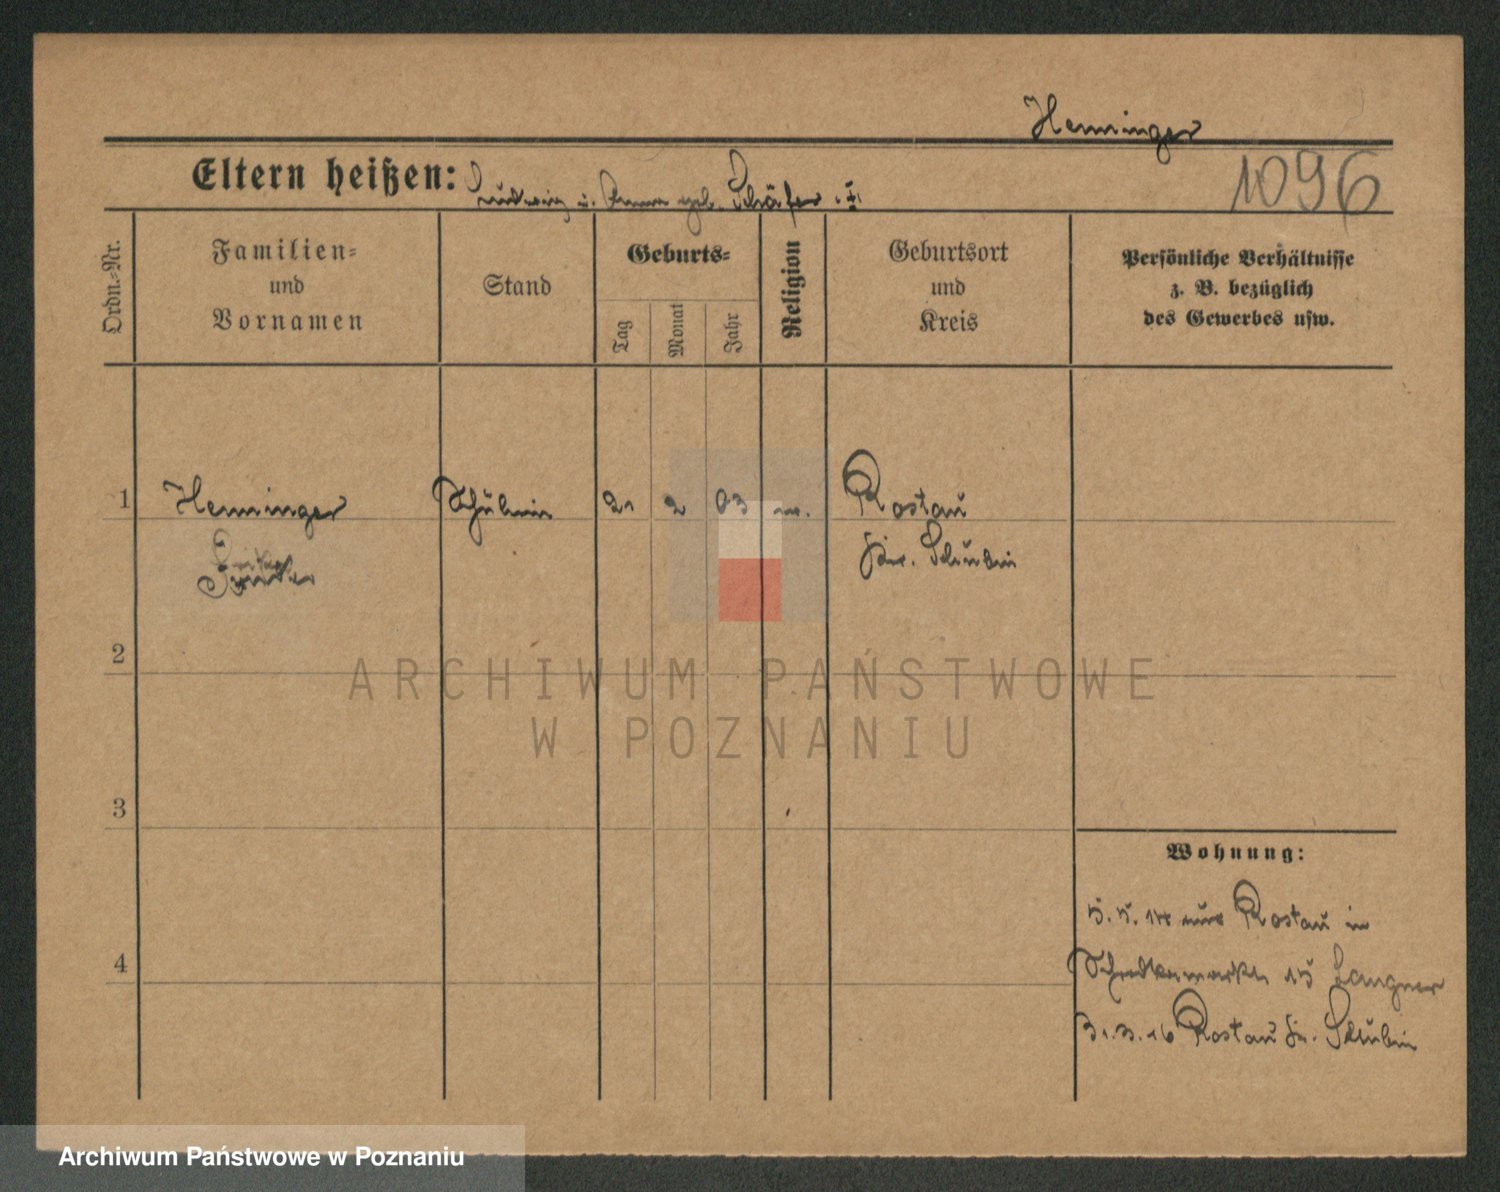 Henninger
1096
Eltern heißen: Ludwig u. Anna geb. Schäfer
Ordn.-Nr.
Familien-
und
Vornamen
Stand
Geburts-
Tag
Monat
Jahr
Religion
Geburtsort
und
Kreis
Persönliche Verhältnisse
z. B. bezüglich
des Gewerbes usw.
1
Henninger
Schülerin
21
2
03
Rostau
Kr. Schubin
2
3
4
Wohnung:
5.5.14 aus Rostau in
15 Langner
31.3.16 Rostau Kr. Schubin
ARCHIWUM PAŃSTWOWE
W POZNANIU
Archiwum Państwowe w Poznaniu